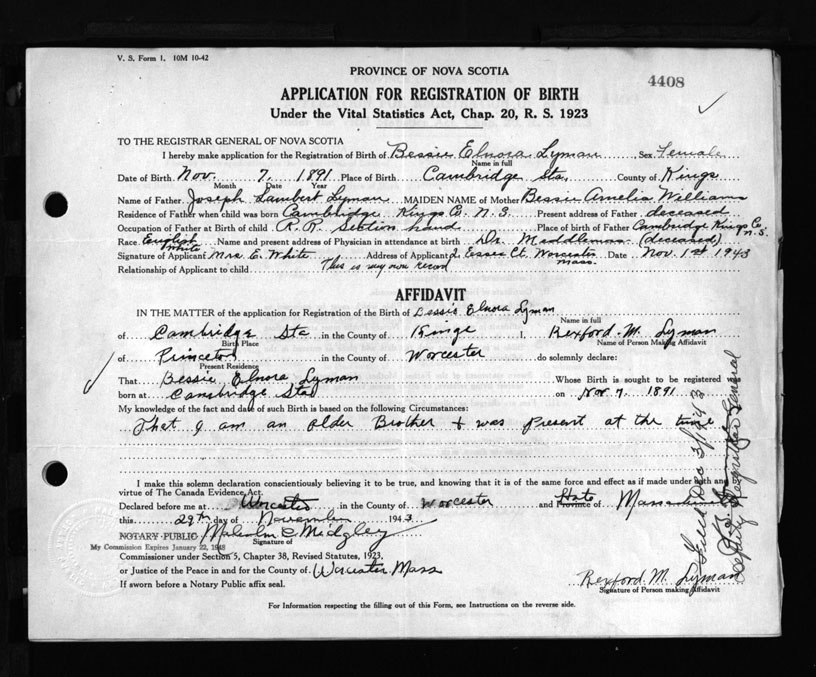 V. S. Form 1. 10M 10-42
PROVINCE OF NOVA SCOTIA
4408
APPLICATION FOR REGISTRATION OF BIRTH
Under the Vital Statistics Act, Chap. 20, R. S. 1923
TO THE REGISTRAR GENERAL OF NOVA SCOTIA
I hereby make application for the Registration of Birth of Bessie Elnora Lyman Sex Female
Name in full
Date of Birth Nov. 7. 1891 Place of Birth Cambridge Sta. County of Kings
Month Date Year
Name of Father Joseph Lambert Lyman MAIDEN NAME of Mother Bessie Amelia Williams
Residence of Father when child was born Cambridge Kings Co. N. S. Present address of Father deceased
Occupation of Father at Birth of child R. R. Section hand Place of birth of Father Cambridge Kings Co. N. S.
Race English White Name and present address of Physician in attendance at birth Dr. Middlemas (deceased)
Signature of Applicant Mrs E. White Address of Applicant 2 Essex Ct. Worcester Mass. Date Nov. 1st 1943
Relationship of Applicant to child This is my own record
AFFIDAVIT
IN THE MATTER of the application for Registration of the Birth of Bessie Elnora Lyman
Name in full
of Cambridge Sta in the County of Kings I, Rexford M. Lyman
Birth Place Name of Person Making Affidavit
of Princeton in the County of Worcester do solemnly declare:
Present Residence
That Bessie Elnora Lyman Whose Birth is sought to be registered was
born at Cambridge Sta on Nov 7. 1891
My knowledge of the fact and date of such Birth is based on the following Circumstances:
That I am an older Brother & was Present at the time
I make this solemn declaration conscientiously believing it to be true, and knowing that it is of the same force and effect as if made under oath and by
virtue of The Canada Evidence Act.
Declared before me at Worcester in the County of Worcester and State Province of Massachusetts
this 29th day of November 1943
NOTARY PUBLIC Malcolm C Midgley
Signature of
My Commission Expires January 22, 1948
Commissioner under Section 5, Chapter 38, Revised Statutes, 1923,
or Justice of the Peace in and for the County of Worcester Mass
If sworn before a Notary Public affix seal.
Rexford M. Lyman
Signature of Person making Affidavit
For Information respecting the filling out of this Form, see Instructions on the reverse side.
Filed Dec 3/1943
Deputy Registrar General